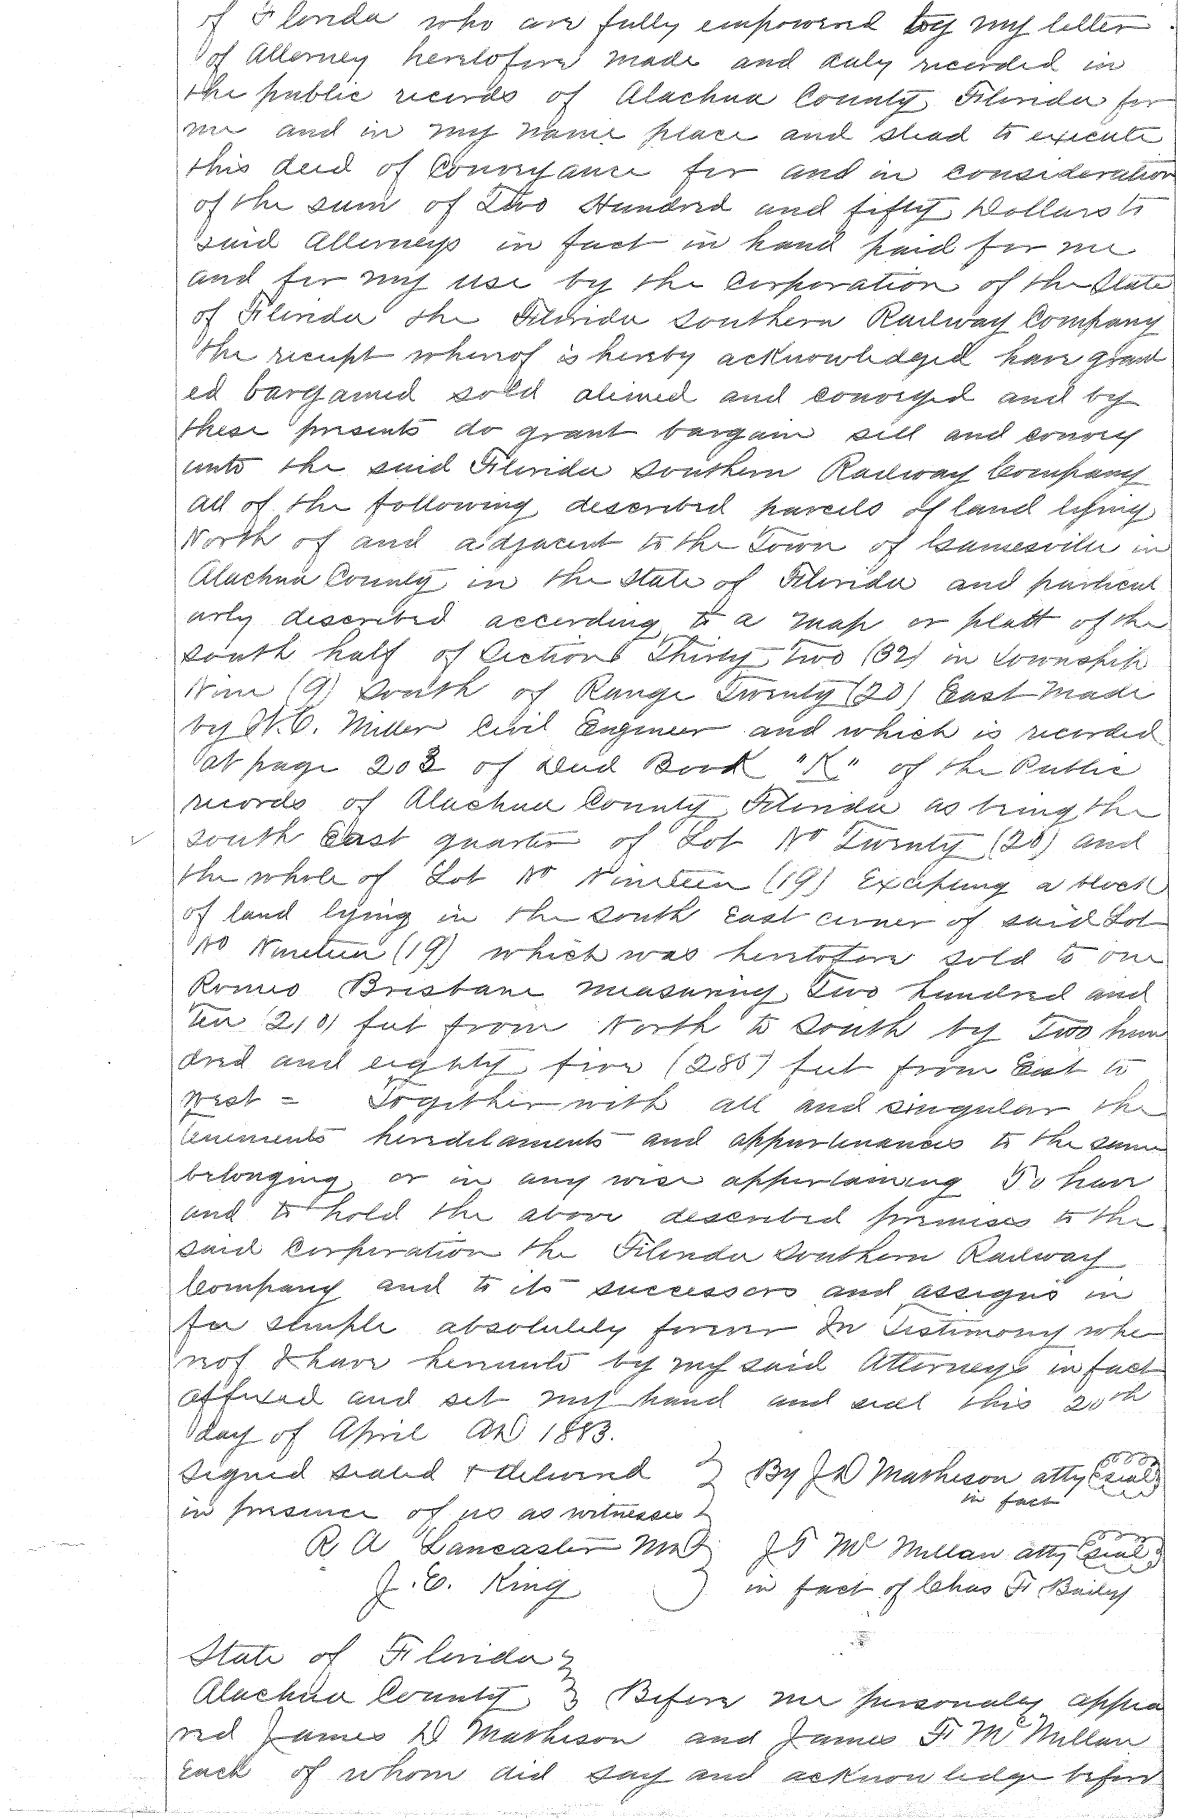 of Florida who are fully empowered by my letter
of Attorney heretofore made and duly recorded in
the public records of Alachua County Florida for
me and in my name place and stead to execute
this deed of conveyance for and in consideration
of the sum of Two Hundred and fifty Dollars to
said Attorneys in fact in hand paid for me
and for my use by the corporation of the State
of Florida the Florida Southern Railway Company
the receipt whereof is hereby acknowledged have grant
ed bargained sold aliened and conveyed and by
these presents do grant bargain sell and convey
unto the said Florida Southern Railway Company
all of the following described parcels of land lying
North of and adjacent to the Town of Gainesville in
Alachua County in the State of Florida and particul
arly described according to a map or platt of the
South half of Section Thirty Two (32) in Township
Nine (9) South of Range Twenty (20) East made
by N.C. Miller Civil Engineer and which is recorded
at page 203 of Deed Book "K" of the Public
records of Alachua County Florida as being the
South East quarter of Lot No Twenty (20) and
the whole of Lot No Nineteen (19) Excepting a block
of land lying in the South East corner of said Lot
No Nineteen (19) which was heretofore sold to one
Romeo Brisbane measuring Two hundred and
Ten (210) feet from North to South by Two hun
dred and eighty five (285) feet from East to
West = Together with all and singular the
tenements heredilaments and appurtenances to the same
belonging or in any wise appertaining To have
and to hold the above described premises to the
said corporation the Florida Southern Railway
Company and to its successors and assigns in
fee simple absolutely forever In Testimony whe
reof I have hereunto by my said Attorneys in fact
affixed and set my hand and seal this 20th
day of April AD 1883.
Signed sealed & delivered } By J D Matheson atty (seal)
in fact
in presence of us as witnesses }
R A Lancaster MD } J F Mc Millan atty (seal)
J. E. King } in fact of Chas F Bailey
State of Florida }
Alachua County } Before me personaly appea
red James D Matheson and James F Mc Millan
Each of whom did say and acknowledge before